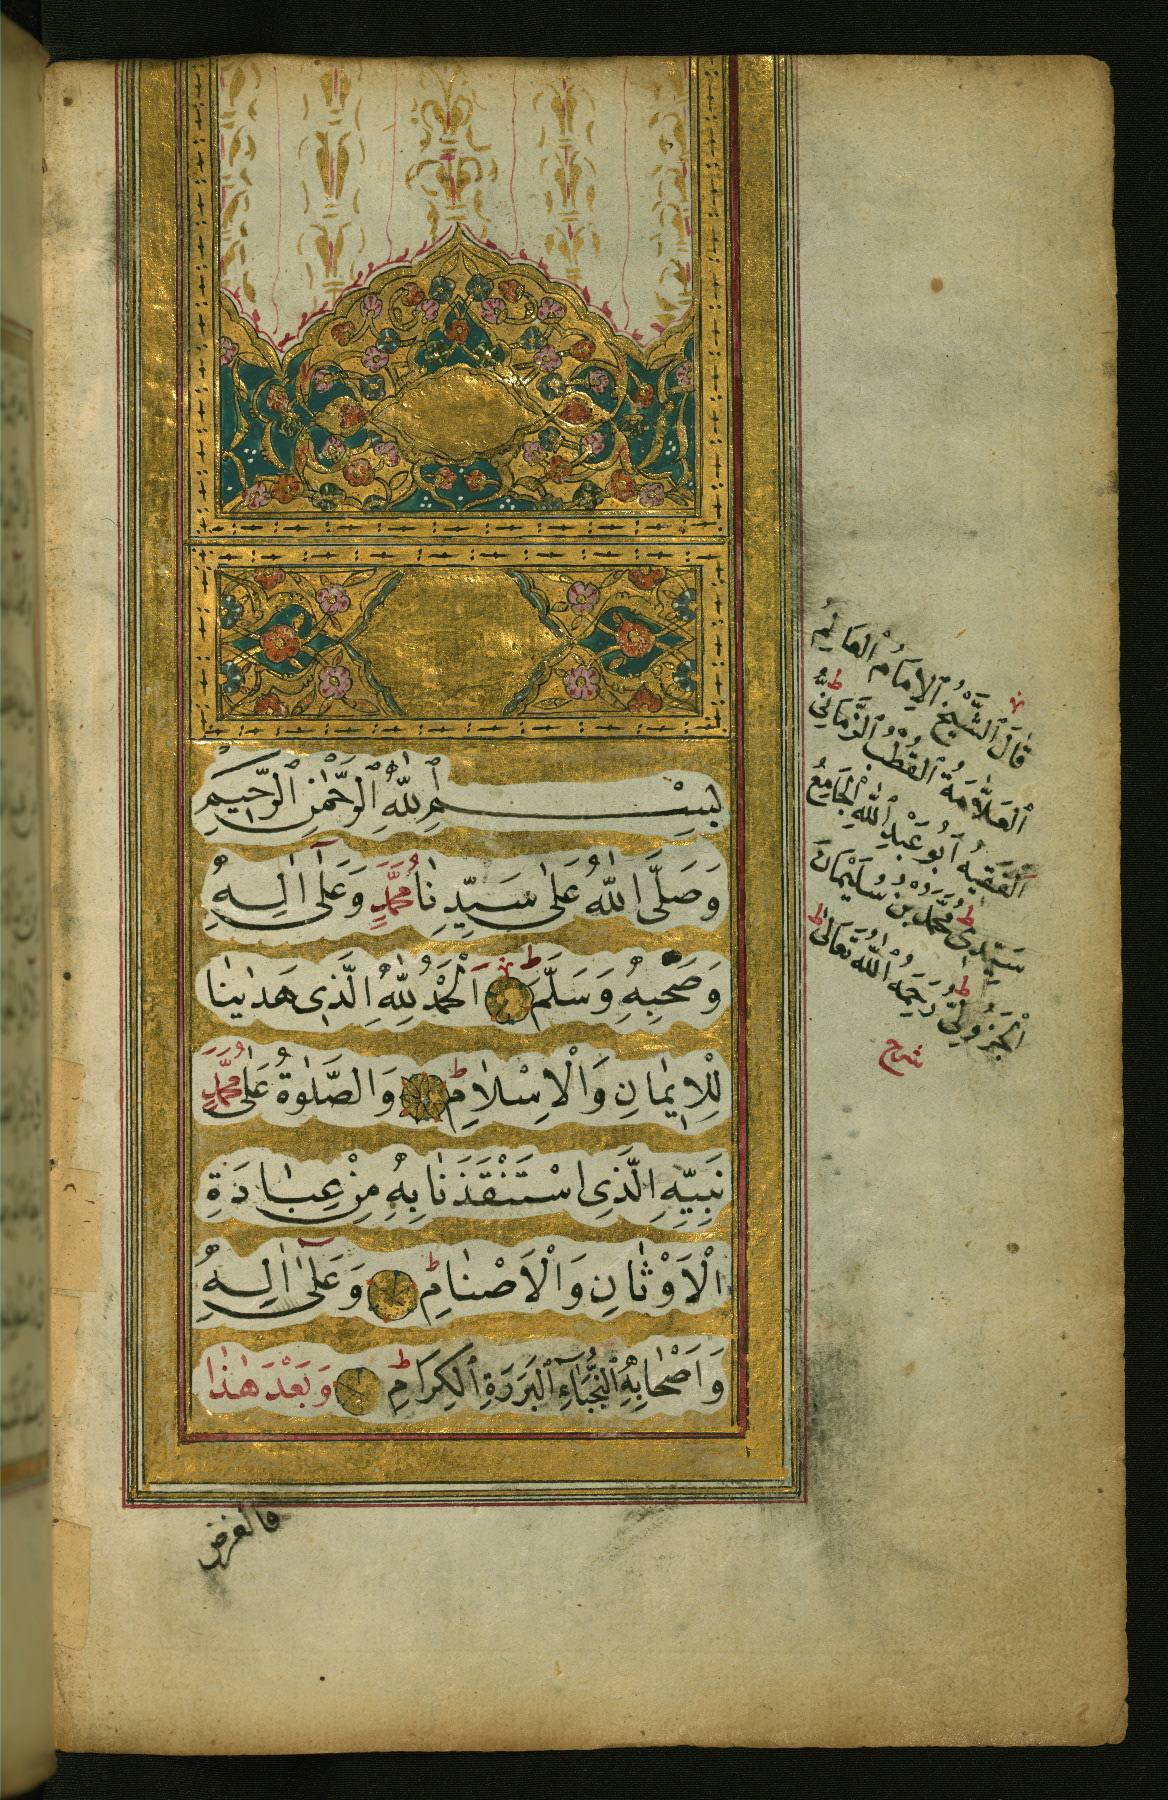 بِسْمِ ٱللّٰهِ ٱلرَّحْمٰنِ ٱلرَّحِيمِ
وَصَلَّى اللّٰهُ عَلٰى سَيِّدِنَا مُحَمَّدٍ وَعَلٰٓى اٰلِهِ
وَصَحْبِهِ وَسَلَّمَ ط اَلْحَمْدُ لِلّٰهِ الَّذِى هَدٰينَا
لِلْاِيمَانِ وَالْاِسْلَامِ ط وَالصَّلٰوةُ عَلٰى مُحَمَّدٍ
نَبِيِّهِ الَّذِى اسْتَنْقَذَنَا بِهِ مِنْ عِبَادَةِ
الْاَوْثَانِ وَالْاَصْنَامِ ط وَعَلٰٓى اٰلِهِ
وَاَصْحَابِهِ ٱلنُّجَبَٓاءِ ٱلْبَرَرَةِ ٱلْكِرَامِ ط وَبَعْدَ هٰذَا
فالغرض
قَالَ ٱلشَّيْخُ ٱلْاِمَامُ ٱلْعَالِمُ
ٱلْعَلَّامَةُ ٱلْقُطْبُ ٱلزَّمَانِىُّ ط
ٱلْفَقِيهُ اَبُو عَبْدِ ٱللّٰهِ ٱلْجَامِعُ
سَيِّدِى مُحَمَّدُ بْنُ سُلَيْمَانَ
ٱلْجَزُولِىُّ ط رَحِمَهُ ٱللّٰهُ تَعَالٰى ط
شرح